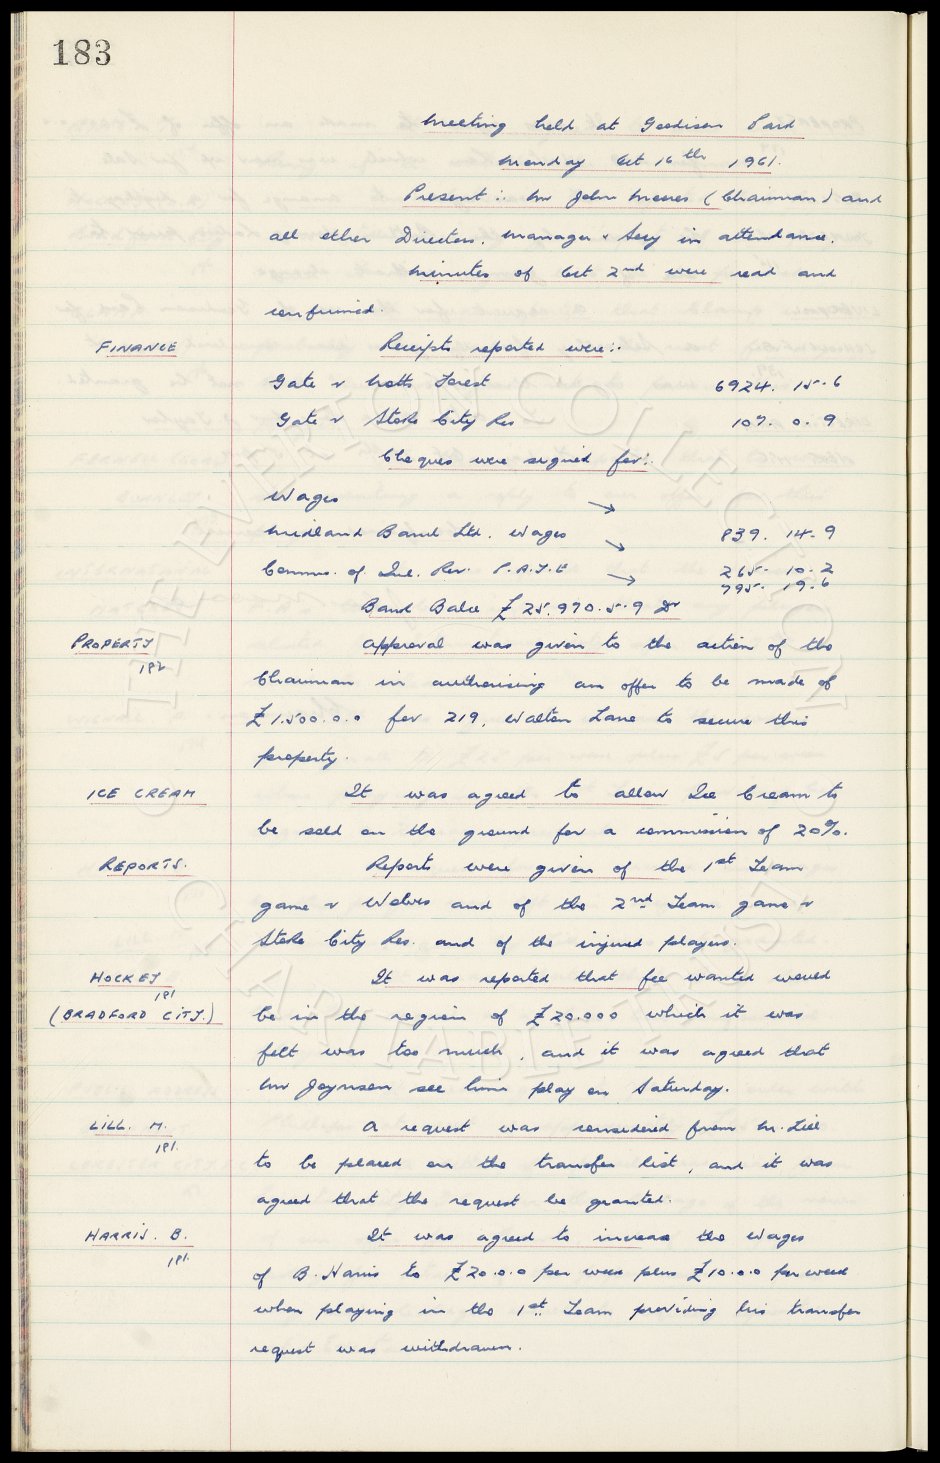 183
Meeting held at Goodison Park
Monday Oct 16th 1961.
Present:- Mr John Moores (Chairman) and
all other Directors. Manager & Secy in attendance.
Minutes of Oct 2nd were read and
confirmed.
FINANCE Receipts reported were:-
Gate v Notts Forest 6924. 15. 6
Gate v Stoke City Res 107. 0. 9
Cheques were signed for:-
Wages →
Midland Bank Ltd. Wages → 839. 14. 9
Comms. of Inl. Rev. P.A.Y.E → 265. 10. 2
795. 19. 6
Bank Balce £25,970.5.9 Dr
PROPERTY Approval was given to the action of the
182
Chairman in authorising an offer to be made of
£1,500.0.0 for 219, Walton Lane to secure this
property.
ICE CREAM It was agreed to allow Ice Cream to
be sold on the ground for a commission of 20%.
REPORTS. Reports were given of the 1st Team
game v Wolves and of the 2nd Team game v
Stoke City Res. and of the injured players.
HOCKEY It was reported that fee wanted would
181
(BRADFORD CITY.) be in the region of £20.000 which it was
felt was too much, and it was agreed that
Mr Joynson see him play on Saturday.
LILL. M. A request was considered from M. Lill
181.
to be placed on the transfer list, and it was
agreed that the request be granted.
HARRIS. B. It was agreed to increase the wages
181.
of B. Harris to £20.0.0 per week plus £10.0.0 per week
when playing in the 1st Team providing his transfer
request was withdrawn.
THE EVERTON COLLECTION
CHARITABLE TRUST